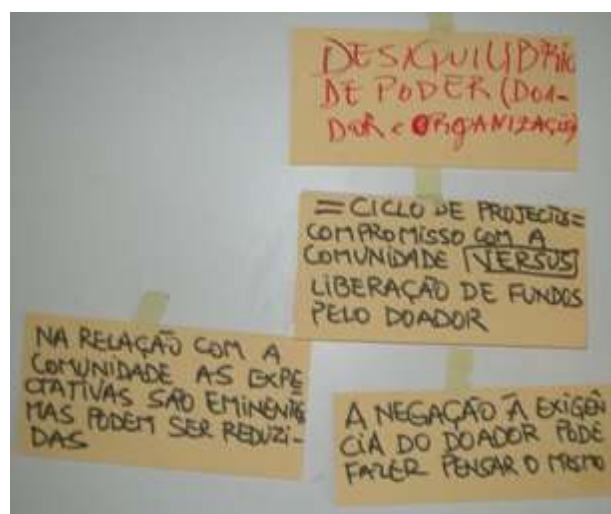 DESIQUILIBRIO
DE PODER (DOA-
DOR e ORGANIZAÇÃO)
= CICLO DE PROJECTOS =
COMPROMISSO COM A
COMUNIDADE VERSUS
LIBERAÇÃO DE FUNDOS
PELO DOADOR
NA RELAÇÃO COM A
COMUNIDADE AS EXPE
CTATIVAS SÃO EMINENTES
MAS PODEM SER REDUZI-
DAS
A NEGAÇÃO À EXIGÊN
CIA DO DOADOR PODE
FAZER PENSAR O MESMO